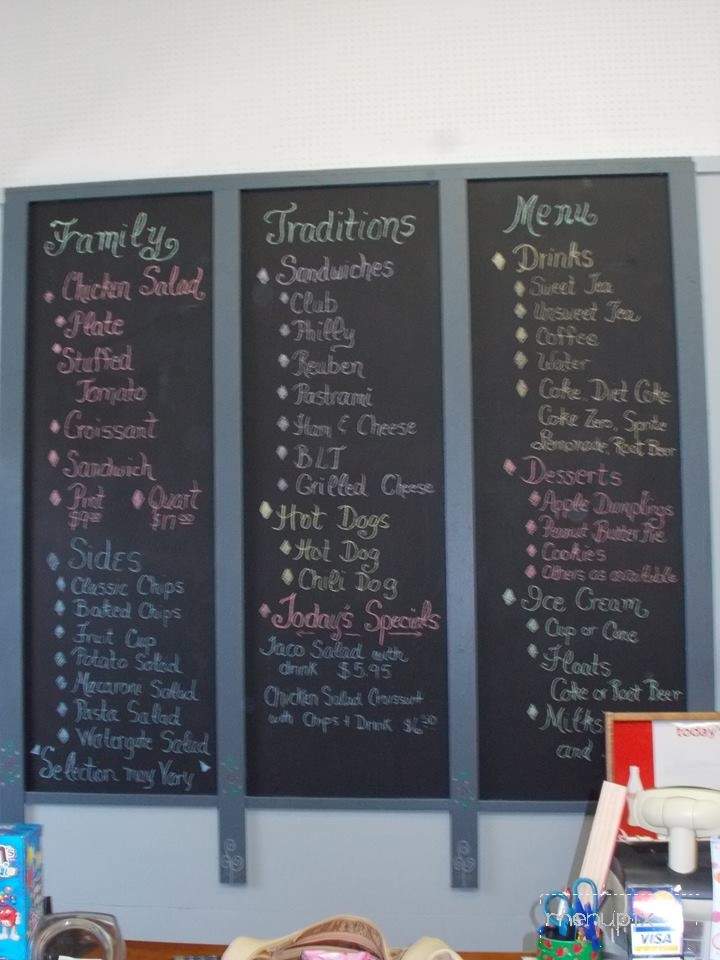 Family
Chicken Salad
Plate
Stuffed
Tomato
Croissant
Sandwich
Pint Quart
$9.00 $17.00
Sides
Classic Chips
Baked Chips
Fruit Cup
Potato Salad
Macaroni Salad
Pasta Salad
Watergate Salad
Selection may Vary
Traditions
Sandwiches
Club
Philly
Reuben
Pastrami
Ham & Cheese
BLT
Grilled Cheese
Hot Dogs
Hot Dog
Chili Dog
Today's Specials
Taco Salad with
drink $5.95
Chicken Salad Croissant
with Chips + Drink $6.50
Menu
Drinks
Sweet Tea
Unsweet Tea
Coffee
Water
Coke, Diet Coke
Coke Zero, Sprite
Lemonade, Root Beer
Desserts
Apple Dumplings
Peanut Butter Pie
Cookies
Others as available
Ice Cream
Cup or Cone
Floats
Coke or Root Beer
Milks
and
today's
menupix
VISA